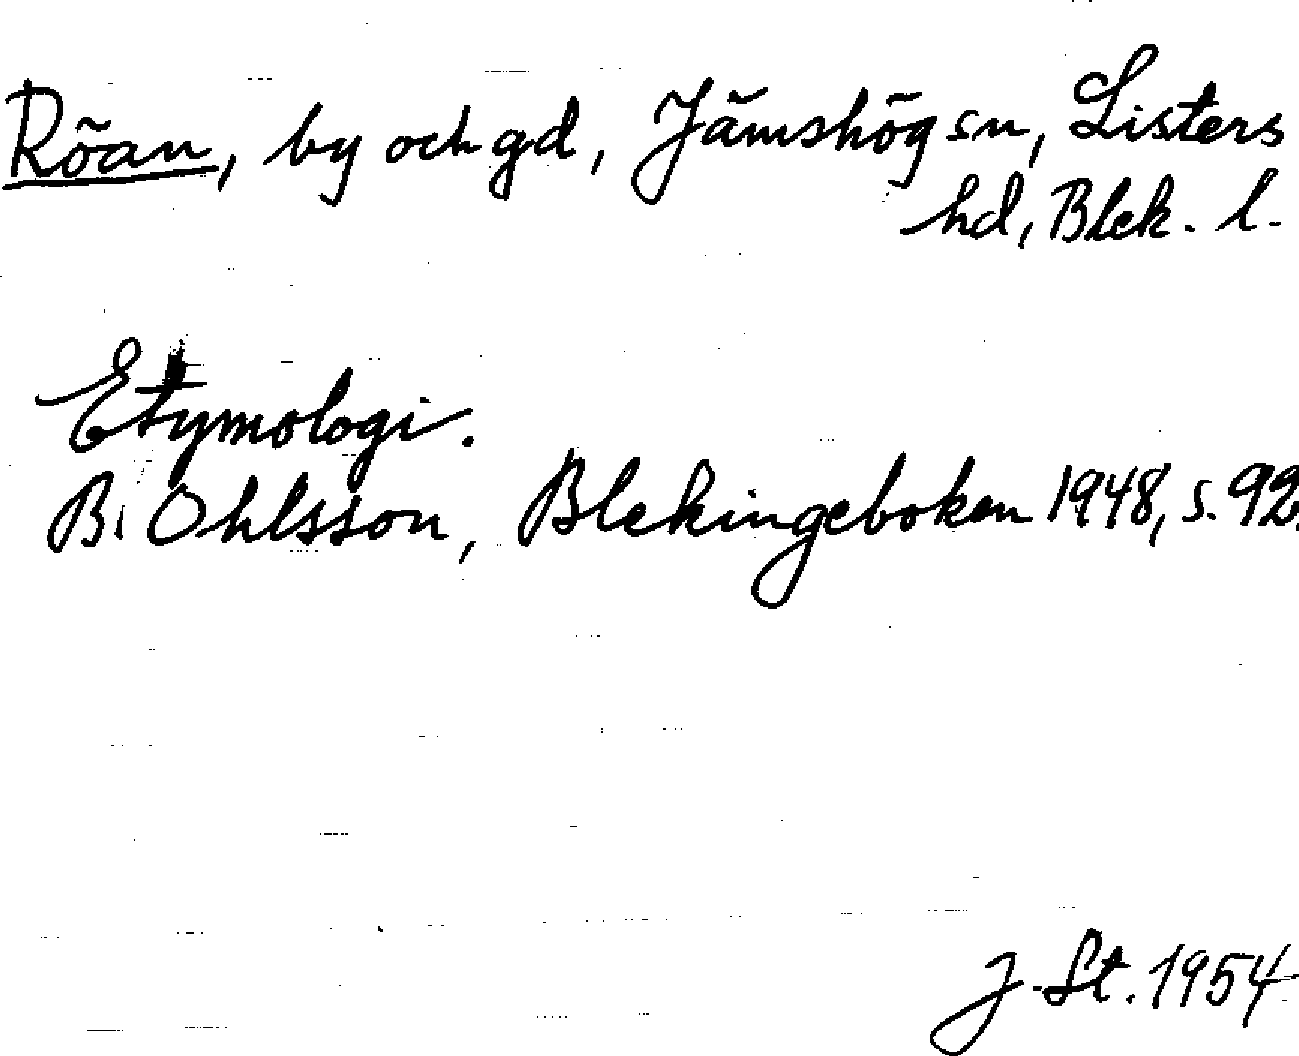 Röan, by och gd, Jämshög sn, Listers
hd, Blek. l.
Etymologi.
B. Ohlsson, Blekingeboken 1948, s. 92.
J. St. 1954